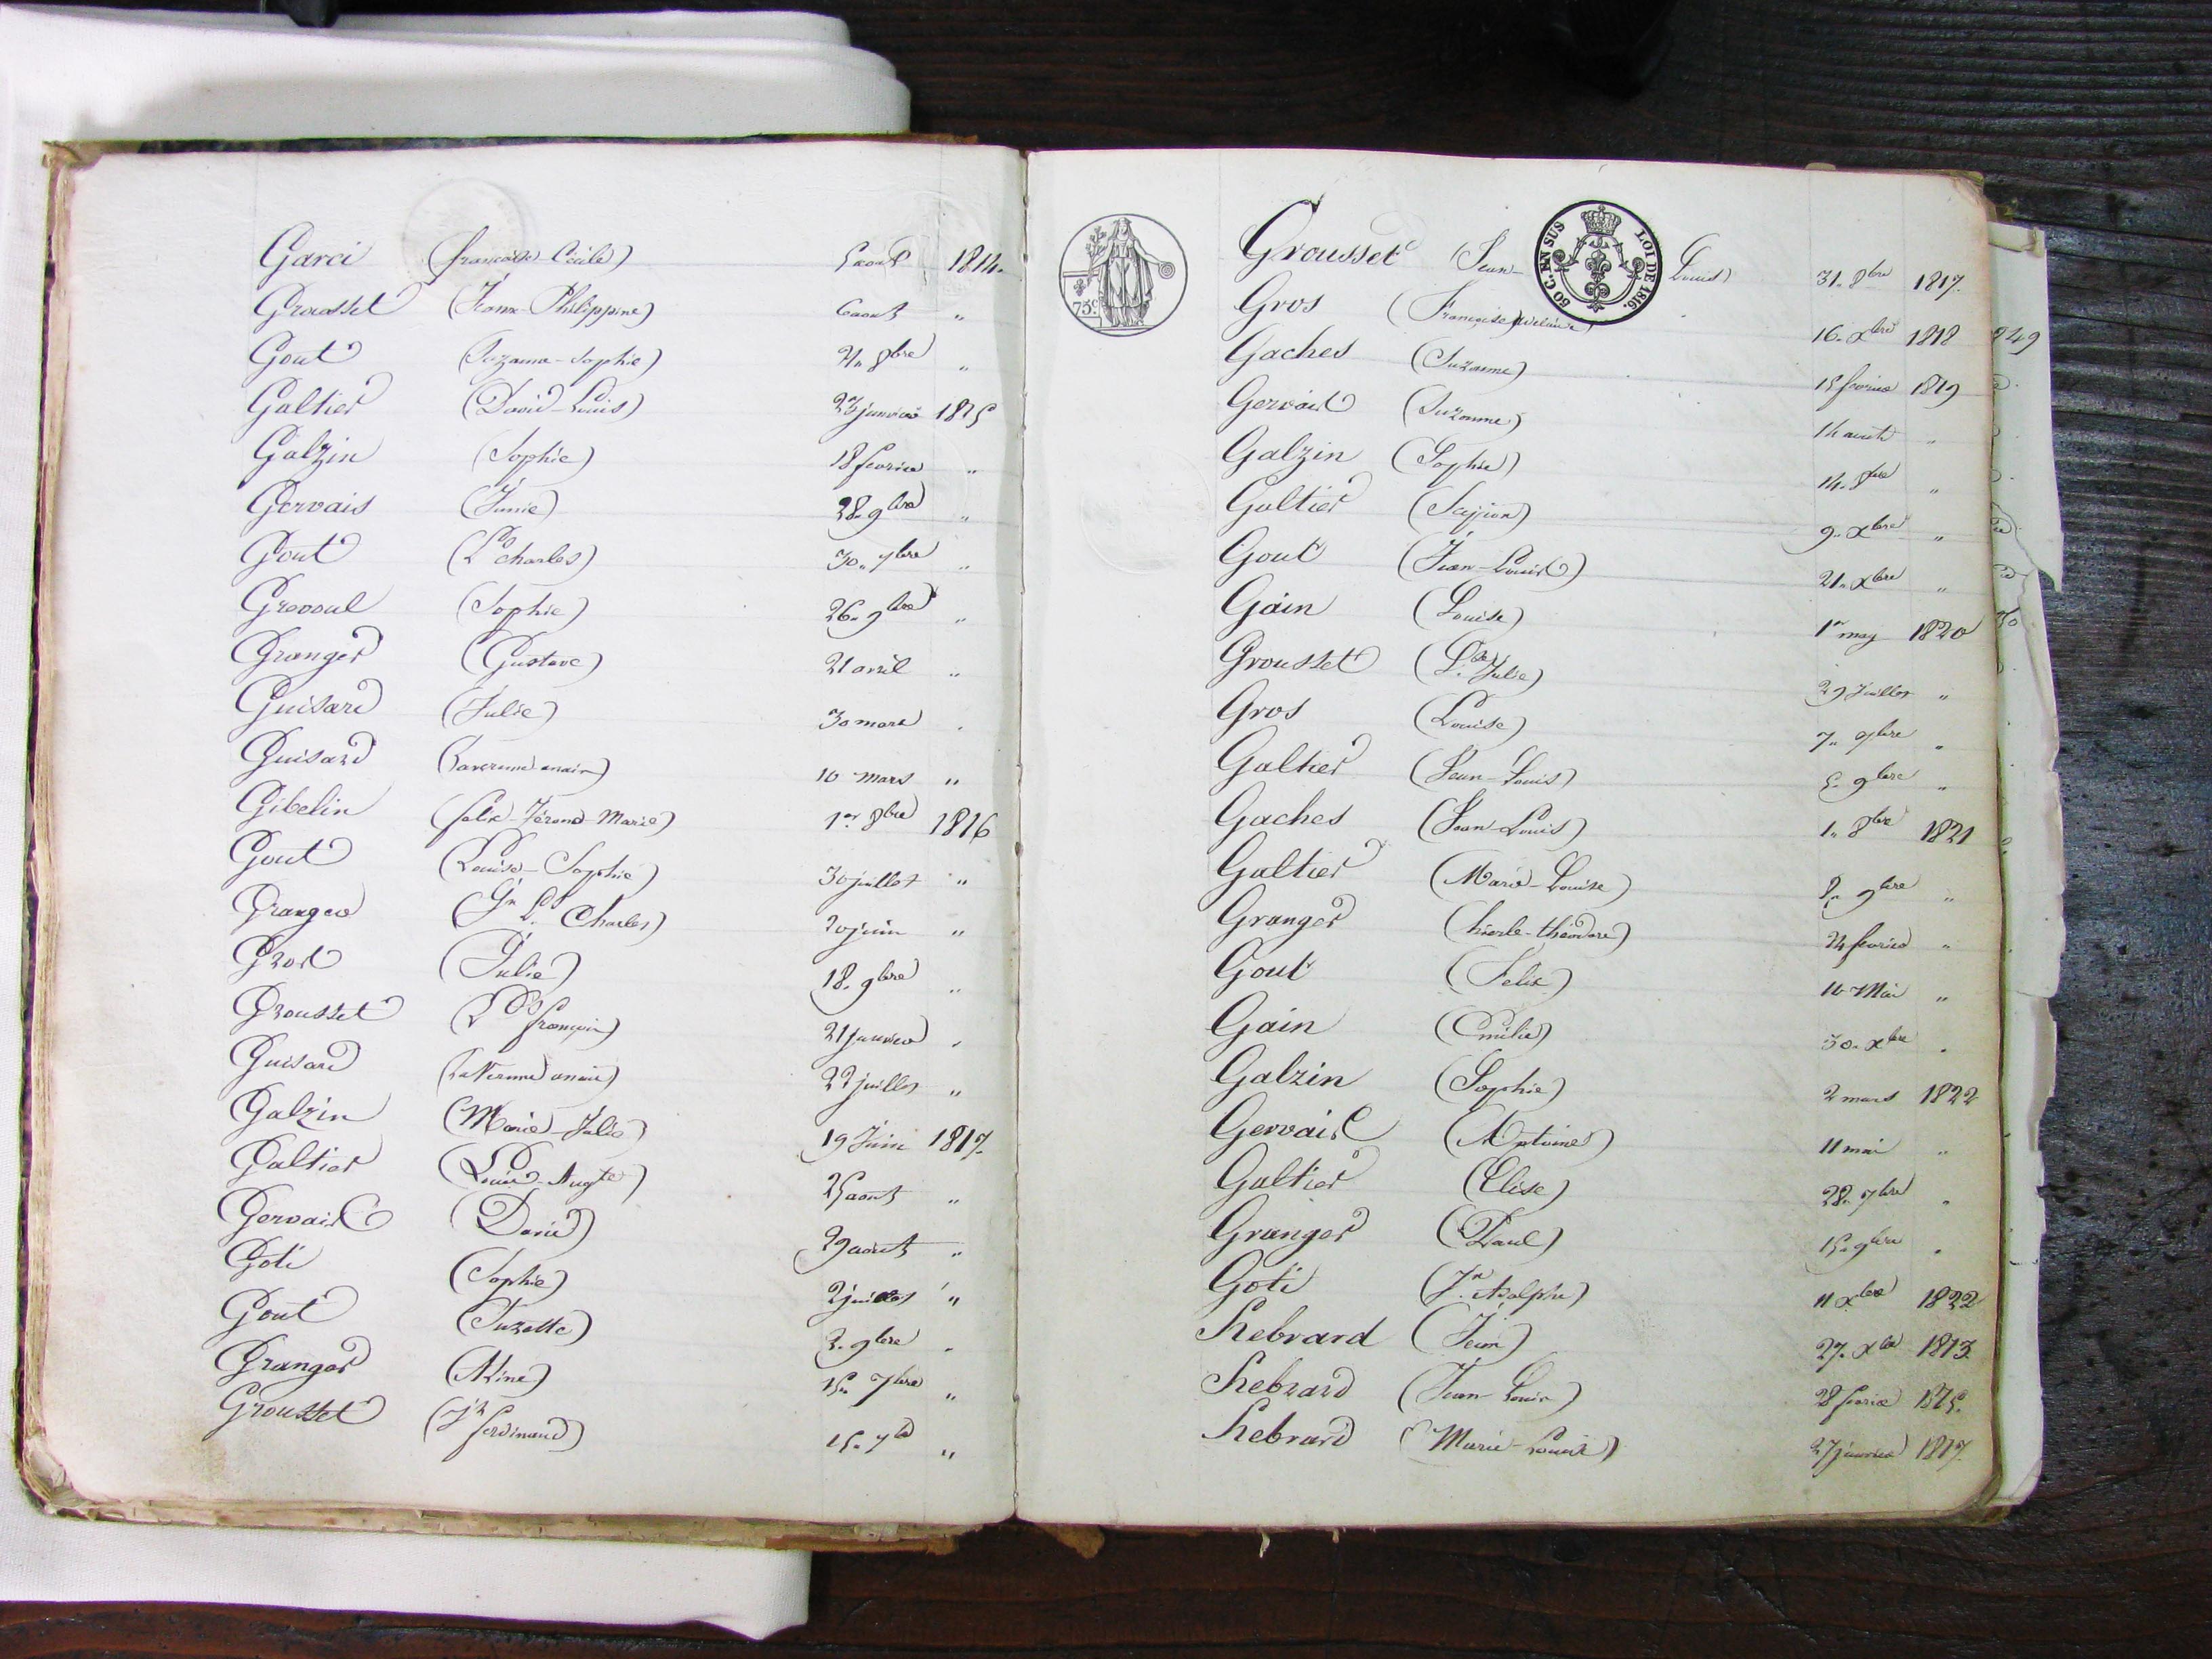 Garci (françoise Cécile) 5 aout 1814.
Grousset (Jeanne-Philippine) 6 aout "
Gout (Suzanne-Sophie) 21. 8bre "
Galtier (David-Louis) 23 janvier 1815
Galzin (Sophie) 18 fevrier "
Gervais (Junie) 28. 9bre "
Gout (Ls charles) 30. 7bre "
Grevoul (Sophie) 26. 9bre "
Granger (Gustave) 21 avril "
Guisard (Julie) 30 mars "
Guisard 10 mars "
Gibelin (felix-Férand-Marie) 1er 8bre 1816
Gout (Louise-Sophie) 30 juillet "
Granger (Jn Ls Charles) 20 juin "
Gros (Julie) 18. 9bre "
Grousset (Ls françois) 21 janvier "
Guisard 22 juillet "
Galzin (Marie-Julie) 19 Juin 1817.
Galtier (Louis-Augte) 25 aout "
Gervais (David) 29 aout "
Goti (Sophie) 2 juillet "
Gout (Suzette) 3. 9bre "
Granger (Aline) 15. 7bre "
Grousset (Jn ferdinand) 15. 7b "
75c.
50 C. EN SUS LOI DE 1816.
Grousset (Jean- Louis) 31. 8bre 1817.
Gros (Francoise) 16. Xbre 1818
249
Gaches (Suzanne) 15 fevrier 1819
Gervais (Suzanne) 14 aout "
Galzin (Sophie) 14. 8bre "
Galtier (Scipion) 9. Xbre "
Gout (Jean-Louis) 21. Xbre "
Gain (Louise) 1er may 1820
Grousset (Lse Julie) 29 Juillet "
Gros (Louise) 7. 9bre "
Galtier (Jean-Louis) 5. 9bre "
Gaches (Jean-Louis) 1. 8bre 1821
Galtier (Marie-Louise) 8. 9bre "
Granger 24 fevrier "
Gout (Felix) 10 Mai "
Gain (Emilie) 30. Xbre "
Galzin (Sophie) 2 mars 1822
Gervais (Antoine) 11 mai "
Galtier (Elise) 28. 7bre "
Granger (Paul) 15. 9bre "
Goti (Jn. Adolphe) 11 Xbre 1822
Hebrard (Jean) 27. Xbre 1813.
Hebrard (Jean Louis) 28 fevrier 1815.
Hebrard (Marie-Louise) 27 janvier 1817.